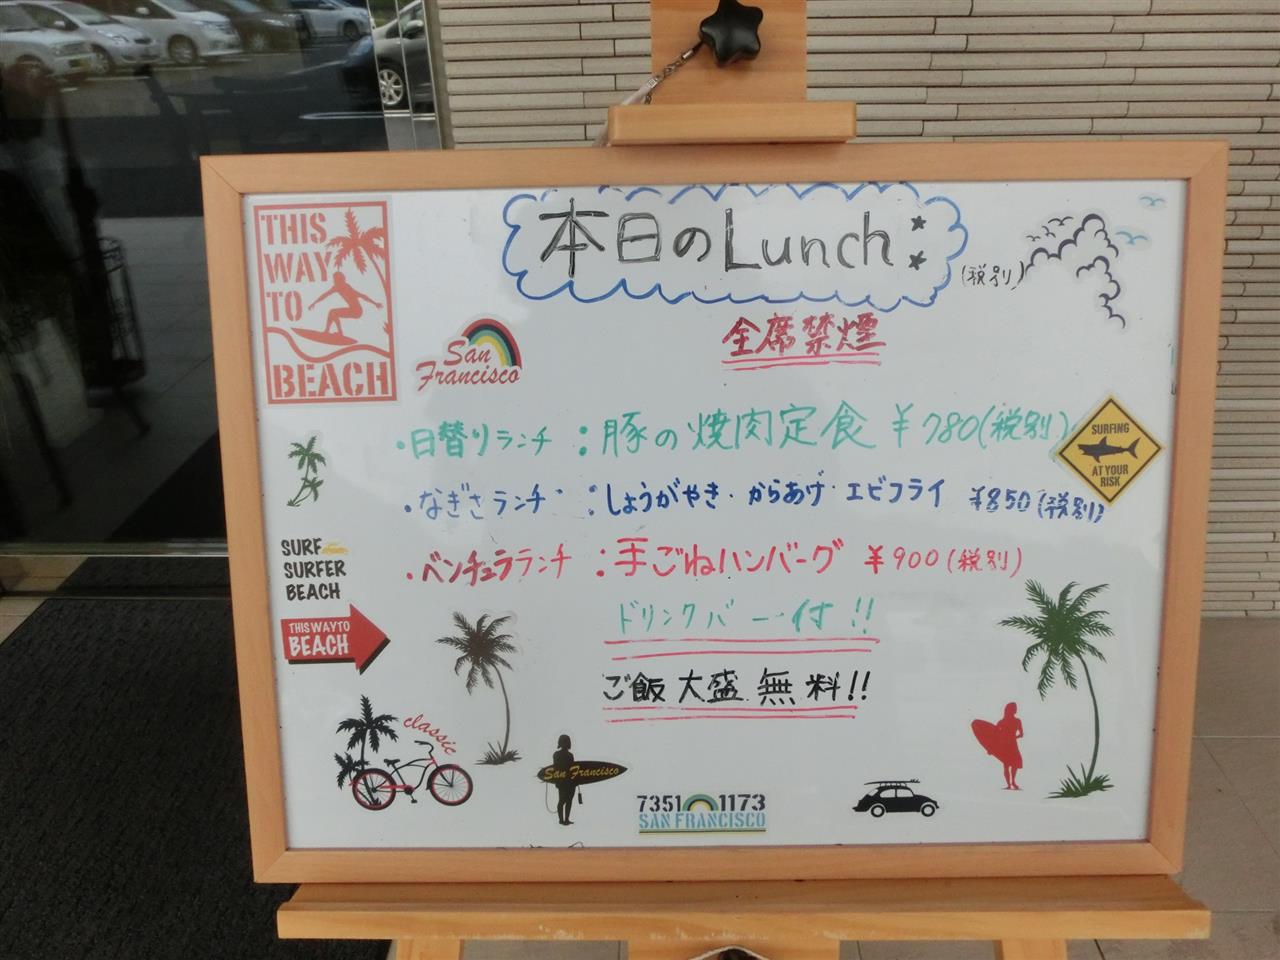 THIS
WAY
TO
BEACH
本日のLunch
(税別)
San
Francisco
全席禁煙
・日替りランチ：豚の焼肉定食 ¥780(税別)
SURFING
AT YOUR
RISK
・なぎさランチ：しょうがやき・からあげ・エビフライ ¥850(税別)
・ベンチュラランチ：手ごねハンバーグ ¥900(税別)
SURF
SURFER
BEACH
ドリンクバー付!!
THIS WAY TO
BEACH
ご飯大盛無料!!
classic
San Francisco
7351 1173
SAN FRANCISCO